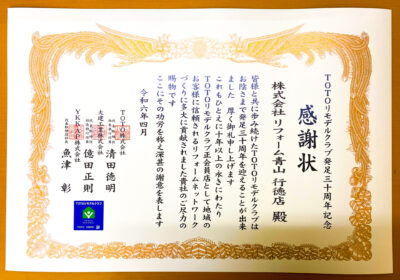 TOTOリモデルクラブ発足三十周年記念
感謝状
株式会社リフォーム青山 行徳店 殿
皆様と共に歩み続けたTOTOリモデルクラブは
お陰さまで発足三十周年を迎えることが出来
ました 厚く御礼申し上げます
これもひとえに十年以上の永きにわたり
TOTOリモデルクラブ正会員店として地域の
お客様に信頼されるリフォームネットワーク
づくりに多大に貢献されました貴社のご尽力の
賜物です
ここにその功労を称え深甚の謝意を表します
令和六年四月
TOTO株式会社
清田 徳明
大建工業株式会社
億田 正則
YKK AP株式会社
魚津 彰